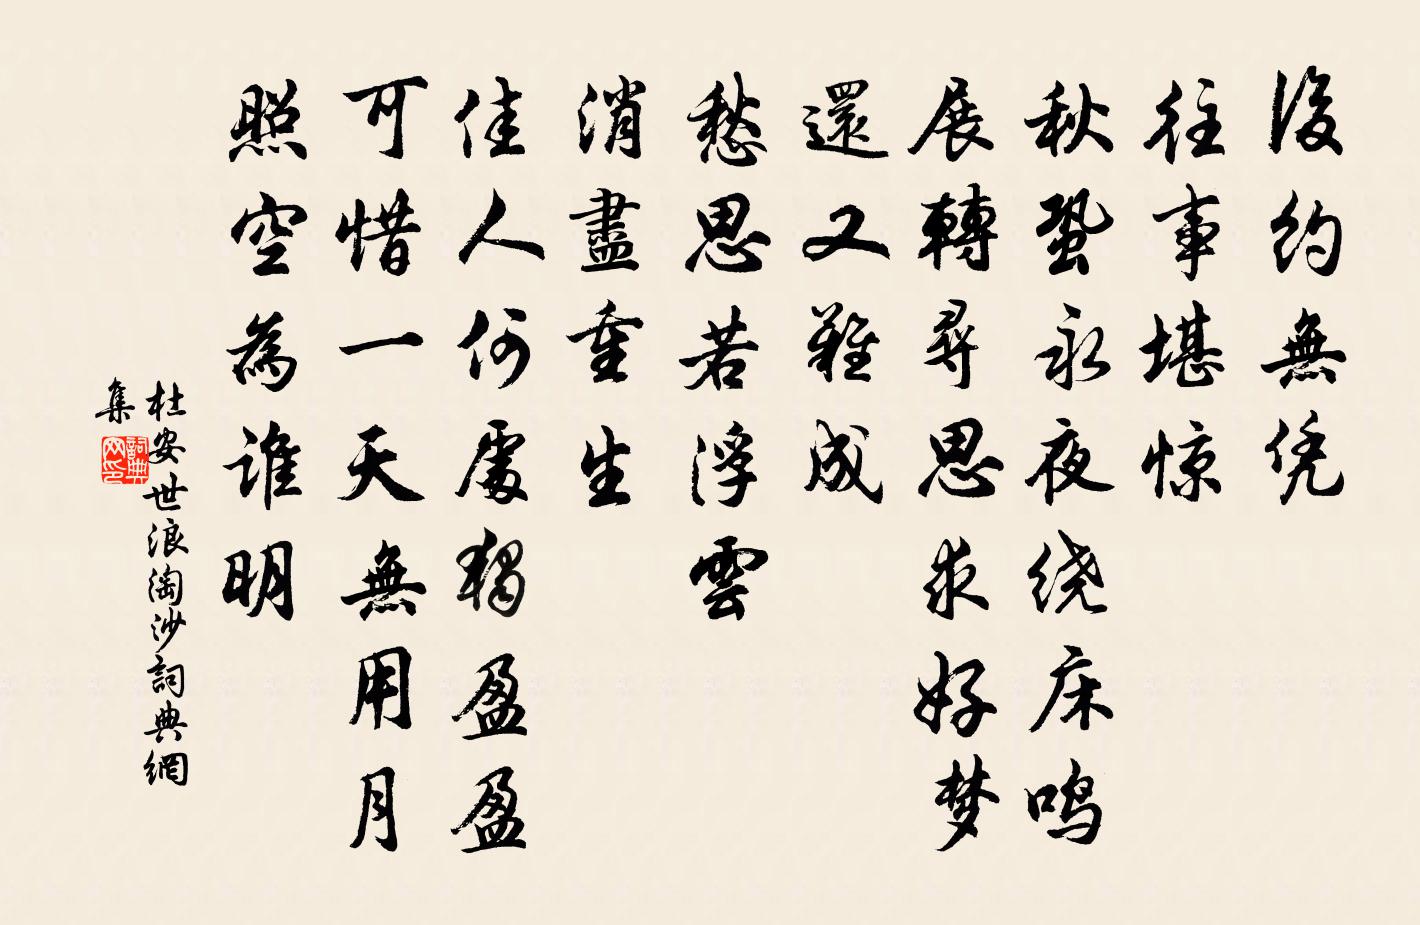 後约無凭
往事堪惊
秋蛩永夜绕床鸣
展轉尋思求好梦
還又難成
愁思若浮雲
消盡重生
佳人何處独盈盈
可惜一天無用月
照空為谁明
杜安世浪淘沙詞典網
集
詞典
网印